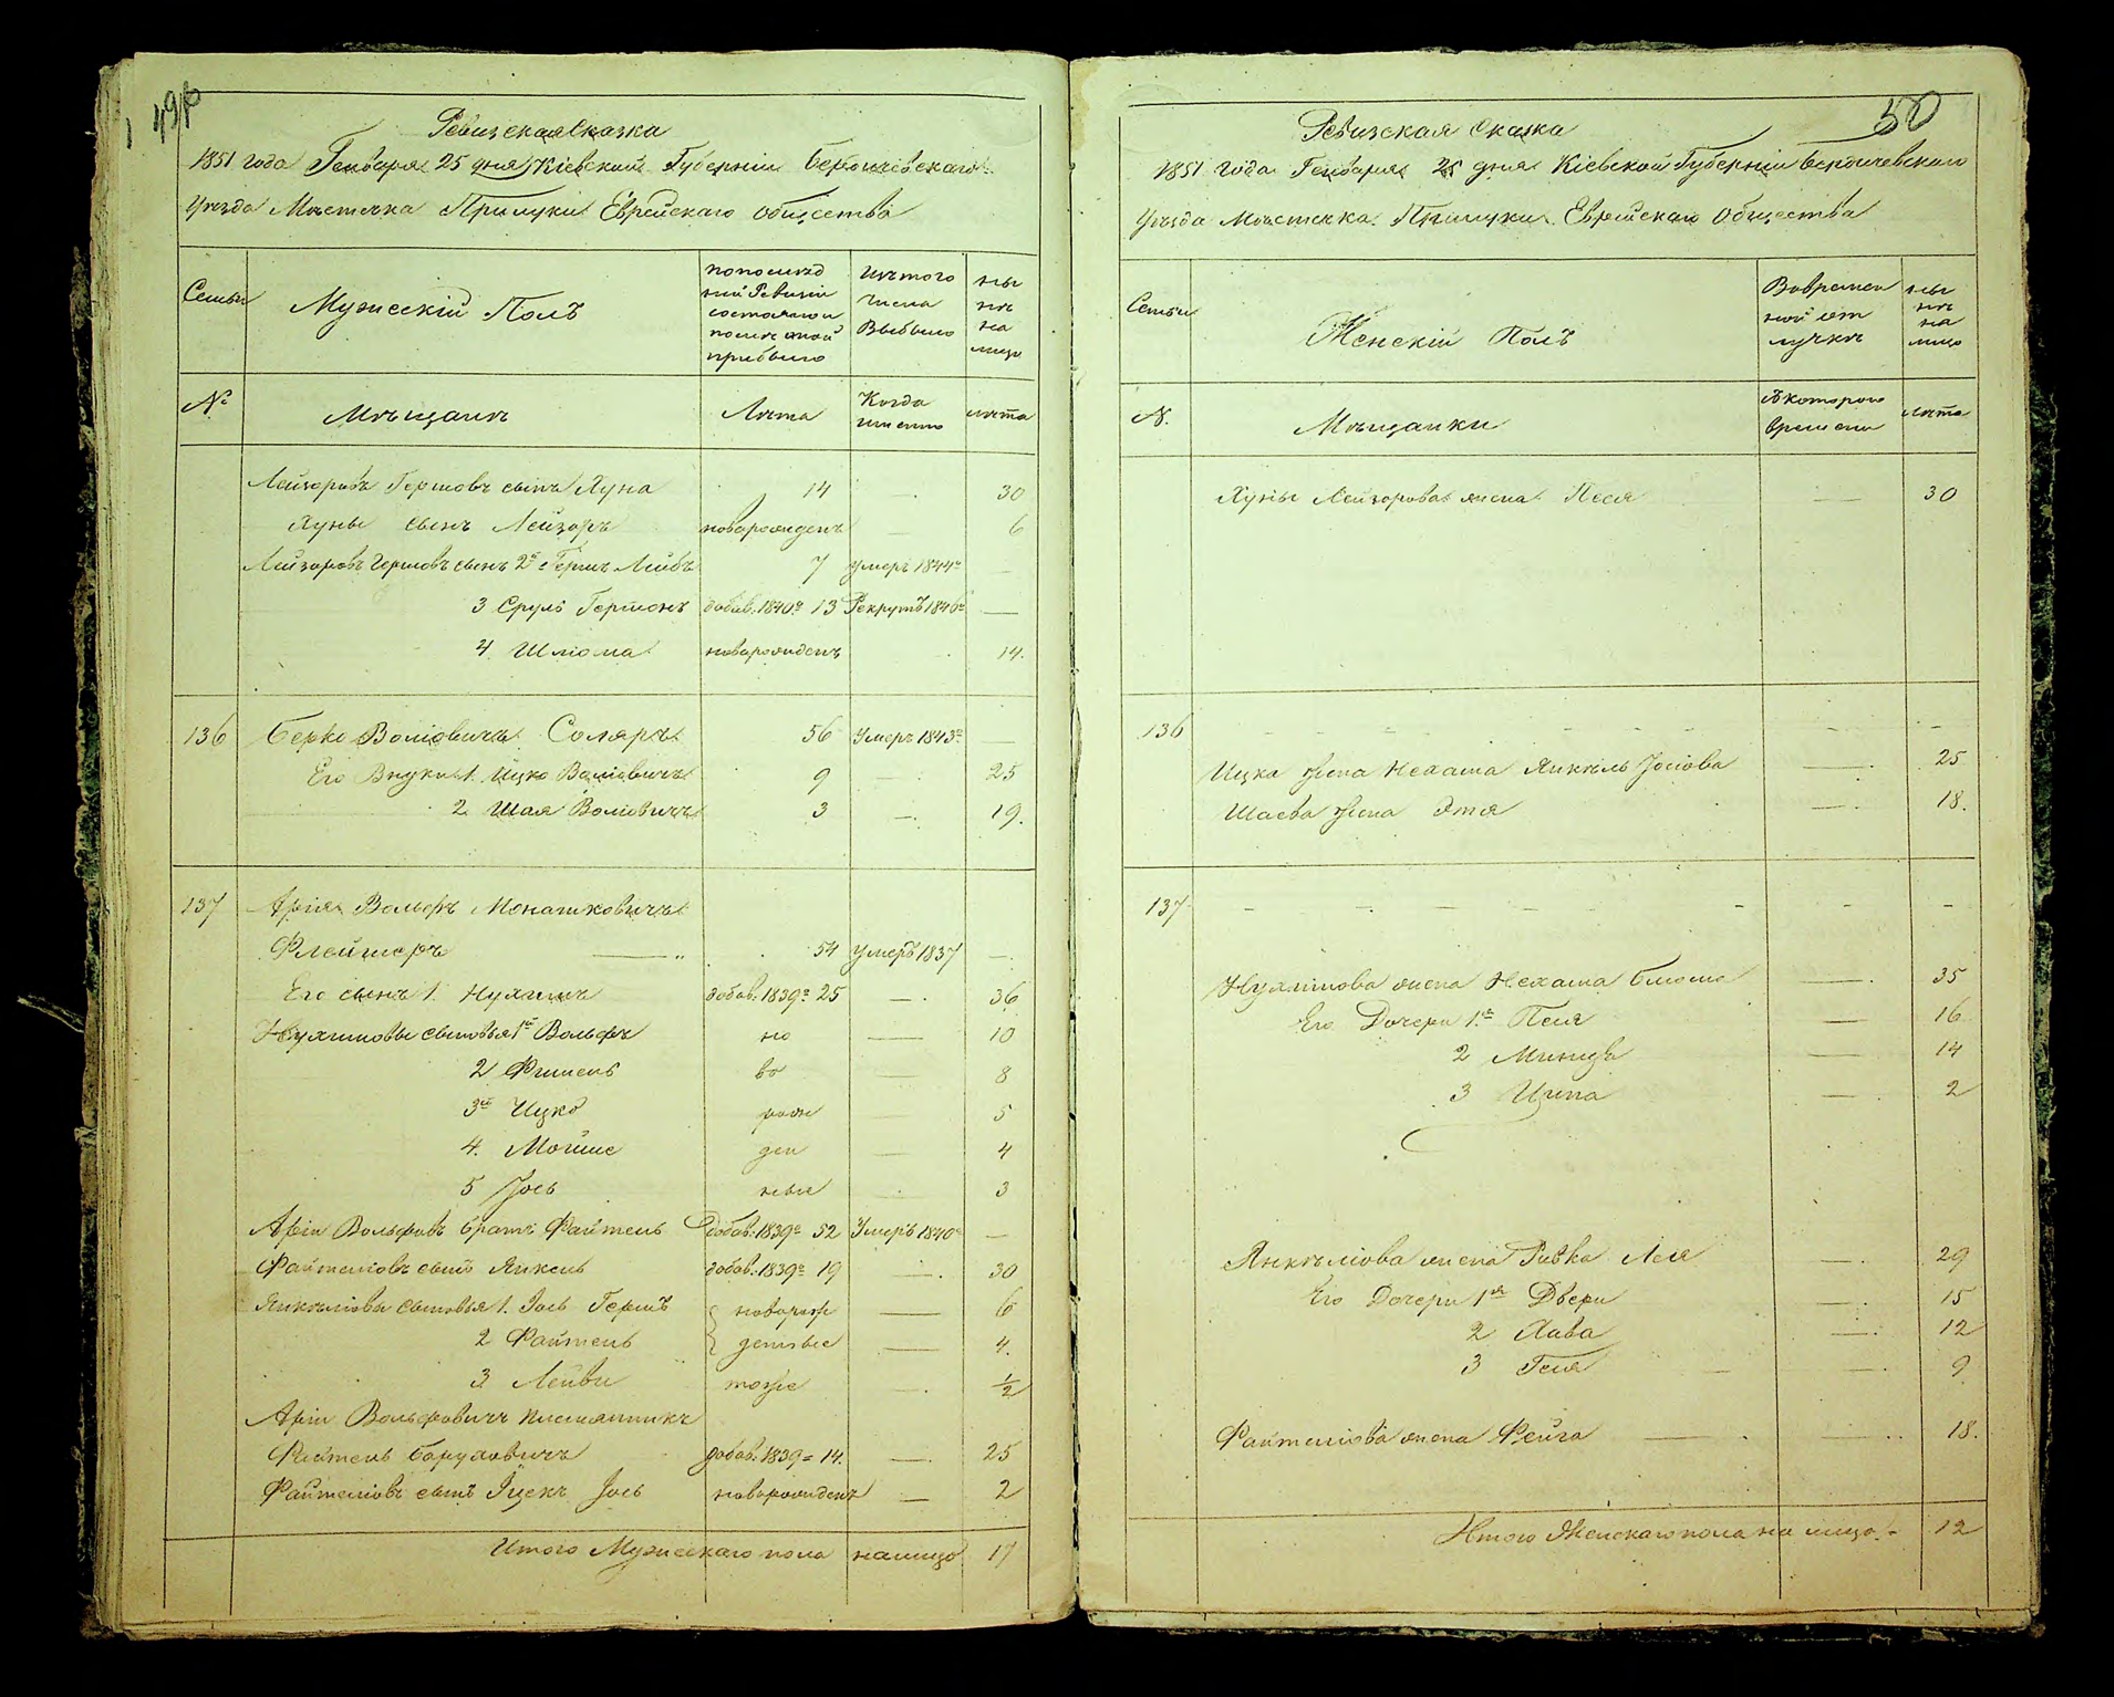 49
Ревизская Сказка
1851 года Генваря 25 дня Кіевской Губерніи Бердичевскаго
Уѣзда Мѣстечка Прилуки Еврейскаго общества
Семьи
Мужескій Полъ
по послѣд
ней Ревизіи
состояло и
послѣ оной
прибыло
Изъ того
числа
Выбыло
ны
нѣ
на
лицо
№
Мѣщанѣ
Лѣта
Когда
именно
лѣта
Лейзоровъ Гершовъ сынъ Хуна 14 — 30
Хуны сынъ Лейзоръ новорожденъ — 6
Лейзоровъ Гершовъ сынъ 2й Гершъ Лейбъ 7 умеръ 1844г —
3 Сруль Гершонъ добав: 1840г 13 Рекрутъ 1846г —
4 Шлюма новорожденъ 14.
136 Берко Воліовичъ Соляръ 56 Умеръ 1843г —
Его Внуки 1. Ицко Воліовичъ 9 — 25
2 Шая Воліовичъ 3 — 19.
137 Арія Вольфъ Монашковичъ
Флейшеръ — 54 умеръ 1837 —
Его сынъ 1. Нухимъ добав: 1839г 25 — 36
Нухимовы сыновья 1й Вольфъ но — 10
2 Фишель во — 8
3й Ицко рож — 5
4. Мойше ден — 4
5 Іось ные — 3
Аріи Вольфовъ братъ Файтель добав: 1839г 52 Умеръ 1840г —
Файтеліовъ сынъ Янкель добав: 1839г 19 — 30
Янкеліовы сыновья 1. Іось Гершъ новорож — 6
2 Файтель денные — 4.
3 Лейби тоже — ½
Аріи Вольфовичъ племянникъ
Файтель Баруховичъ добав: 1839г 14. — 25
Файтеліовъ сынъ Іцекъ Іось новорожденъ — 2
Итого Мужескаго пола на лицо 17
50
Ревизская Сказка
1851 года Генваря 25 дня Кіевской Губерніи Бердичевскаго
Уѣзда Мѣстечка Прилуки Еврейскаго Общества
Семьи
Женскій Полъ
Во времен
ной от
лучкѣ
ны
нѣ
на
лицо
№.
Мѣщанки
Съ котораго
времени
лѣта
Хуны Лейзорова жена Песя — 30
136 — — — —
Ицка жена Нехама Янкель Іосіова — 25
Шаева жена Этя — 18.
137 — — — —
Нухимова жена Нехама Блюма — 35
Его Дочери 1я Песя — 16
2 Минця — 14
3 Ципа — 2
Янкеліова жена Ривка Лея — 29
Его Дочери 1я Двери — 15
2 Хава — 12
3 Геля — 9
Файтеліова жена Фейга — 18.
Итого Женскаго пола на лицо 12